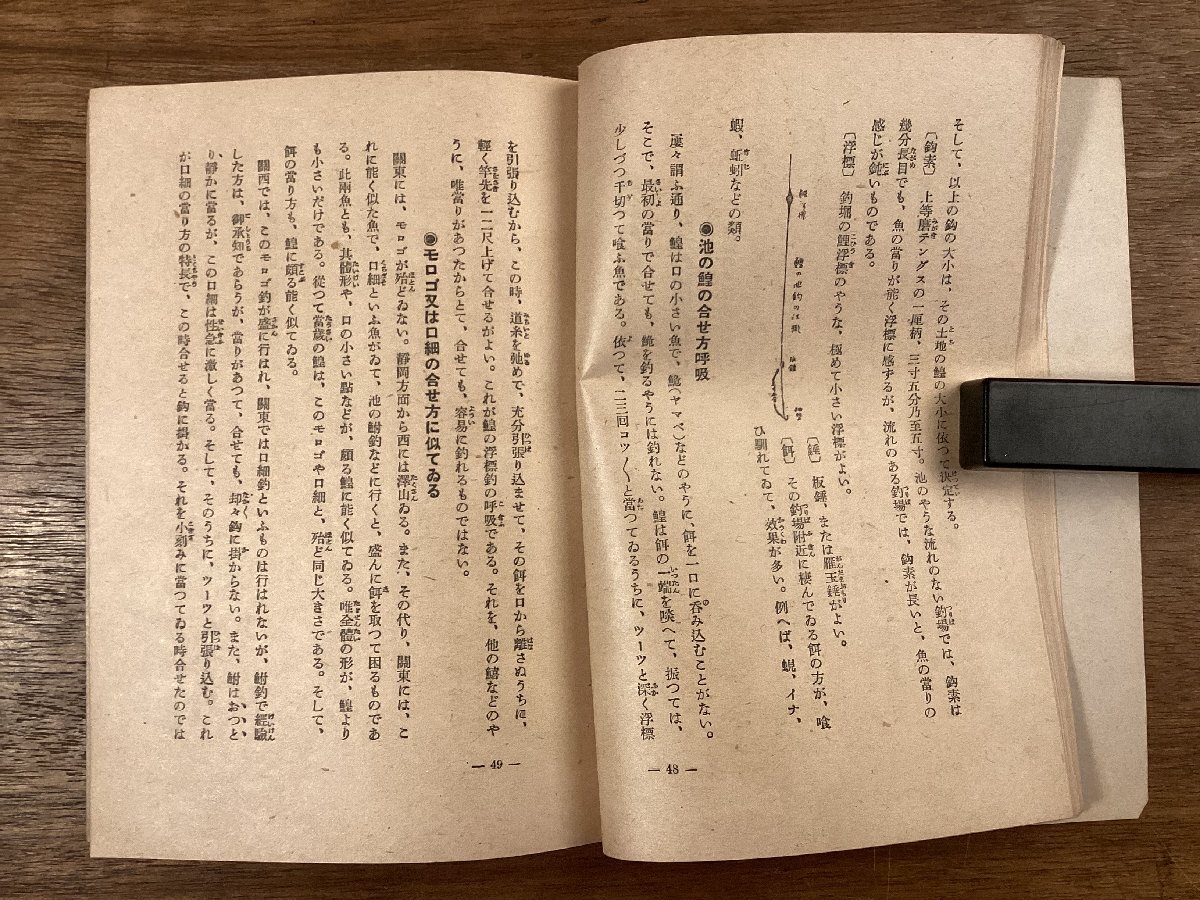 そして、以上の鈎の大小は、その土地の鰉の大小に依つて決定する。
〔鈎素〕 上等磨テングスの一厘柄、三寸五分乃至五寸。池のやうな流れのない釣場では、鈎素は
幾分長目でも、魚の當りが能く浮標に感ずるが、流れのある釣場では、鈎素が長いと、魚の當りの
感じが鈍いものである。
〔浮標〕 釣堀の鯉浮標のやうな、極めて小さい浮標がよい。
〔錘〕 板錘、または雁玉錘がよい。
〔餌〕 その釣場附近に棲んでゐる餌の方が、喰
ひ馴れてゐて、效果が多い。例へば、蜆、イナ、
蝦、蚯蚓などの類。
◉池の鰉の合せ方呼吸
屢々謂ふ通り、鰉は口の小さい魚で、鮠(ヤマベ)などのやうに、餌を一口に呑み込むことがない。
そこで、最初の當りで合せても、鮠を釣るやうには釣れない。鰉は餌の一端を啖へて、振つては、
少しづつ千切つて喰ふ魚である。依つて、二三回コツ〳〵と當つてゐるうちに、ツーツと深く浮標
— 48 —
を引張り込むから、この時、道糸を弛めて、充分引張り込ませて、その餌を口から離さぬうちに、
輕く竿先を一二尺上げて合せるがよい。これが鰉の浮標釣の呼吸である。それを、他の鱚などのや
うに、唯當りがあつたからとて、合せても、容易に釣れるものではない。
◉モロゴ又は口細の合せ方に似てゐる
關東には、モロゴが殆どゐない。靜岡方面から西には澤山ゐる。また、その代り、關東には、こ
れに能く似た魚で、口細といふ魚がゐて、池の鮒釣などに行くと、盛んに餌を取つて困るものであ
る。此兩魚とも、其體形や、口の小さい點などが、頗る鰉に能く似てゐる。唯全體の形が、鰉より
も小さいだけである。從つて當歳の鰉は、このモロゴや口細と、殆ど同じ大きさである。そして、
餌の當り方も、鰉に頗る能く似てゐる。
關西では、このモロゴ釣が盛に行はれ、關東では口細釣といふものは行はれないが、鮒釣で經驗
した方は、御承知であらうが、當りがあつて、合せても、却々鈎に掛からない。また、鮒はおつと、
り、靜かに當るが、この口細は性急に激しく當る。そして、そのうちに、ツーツと引張り込む。これ
が口細の當り方の特長で、この時合せると鈎に掛かる。それを小刻みに當つてゐる時合せたのでは
— 49 —